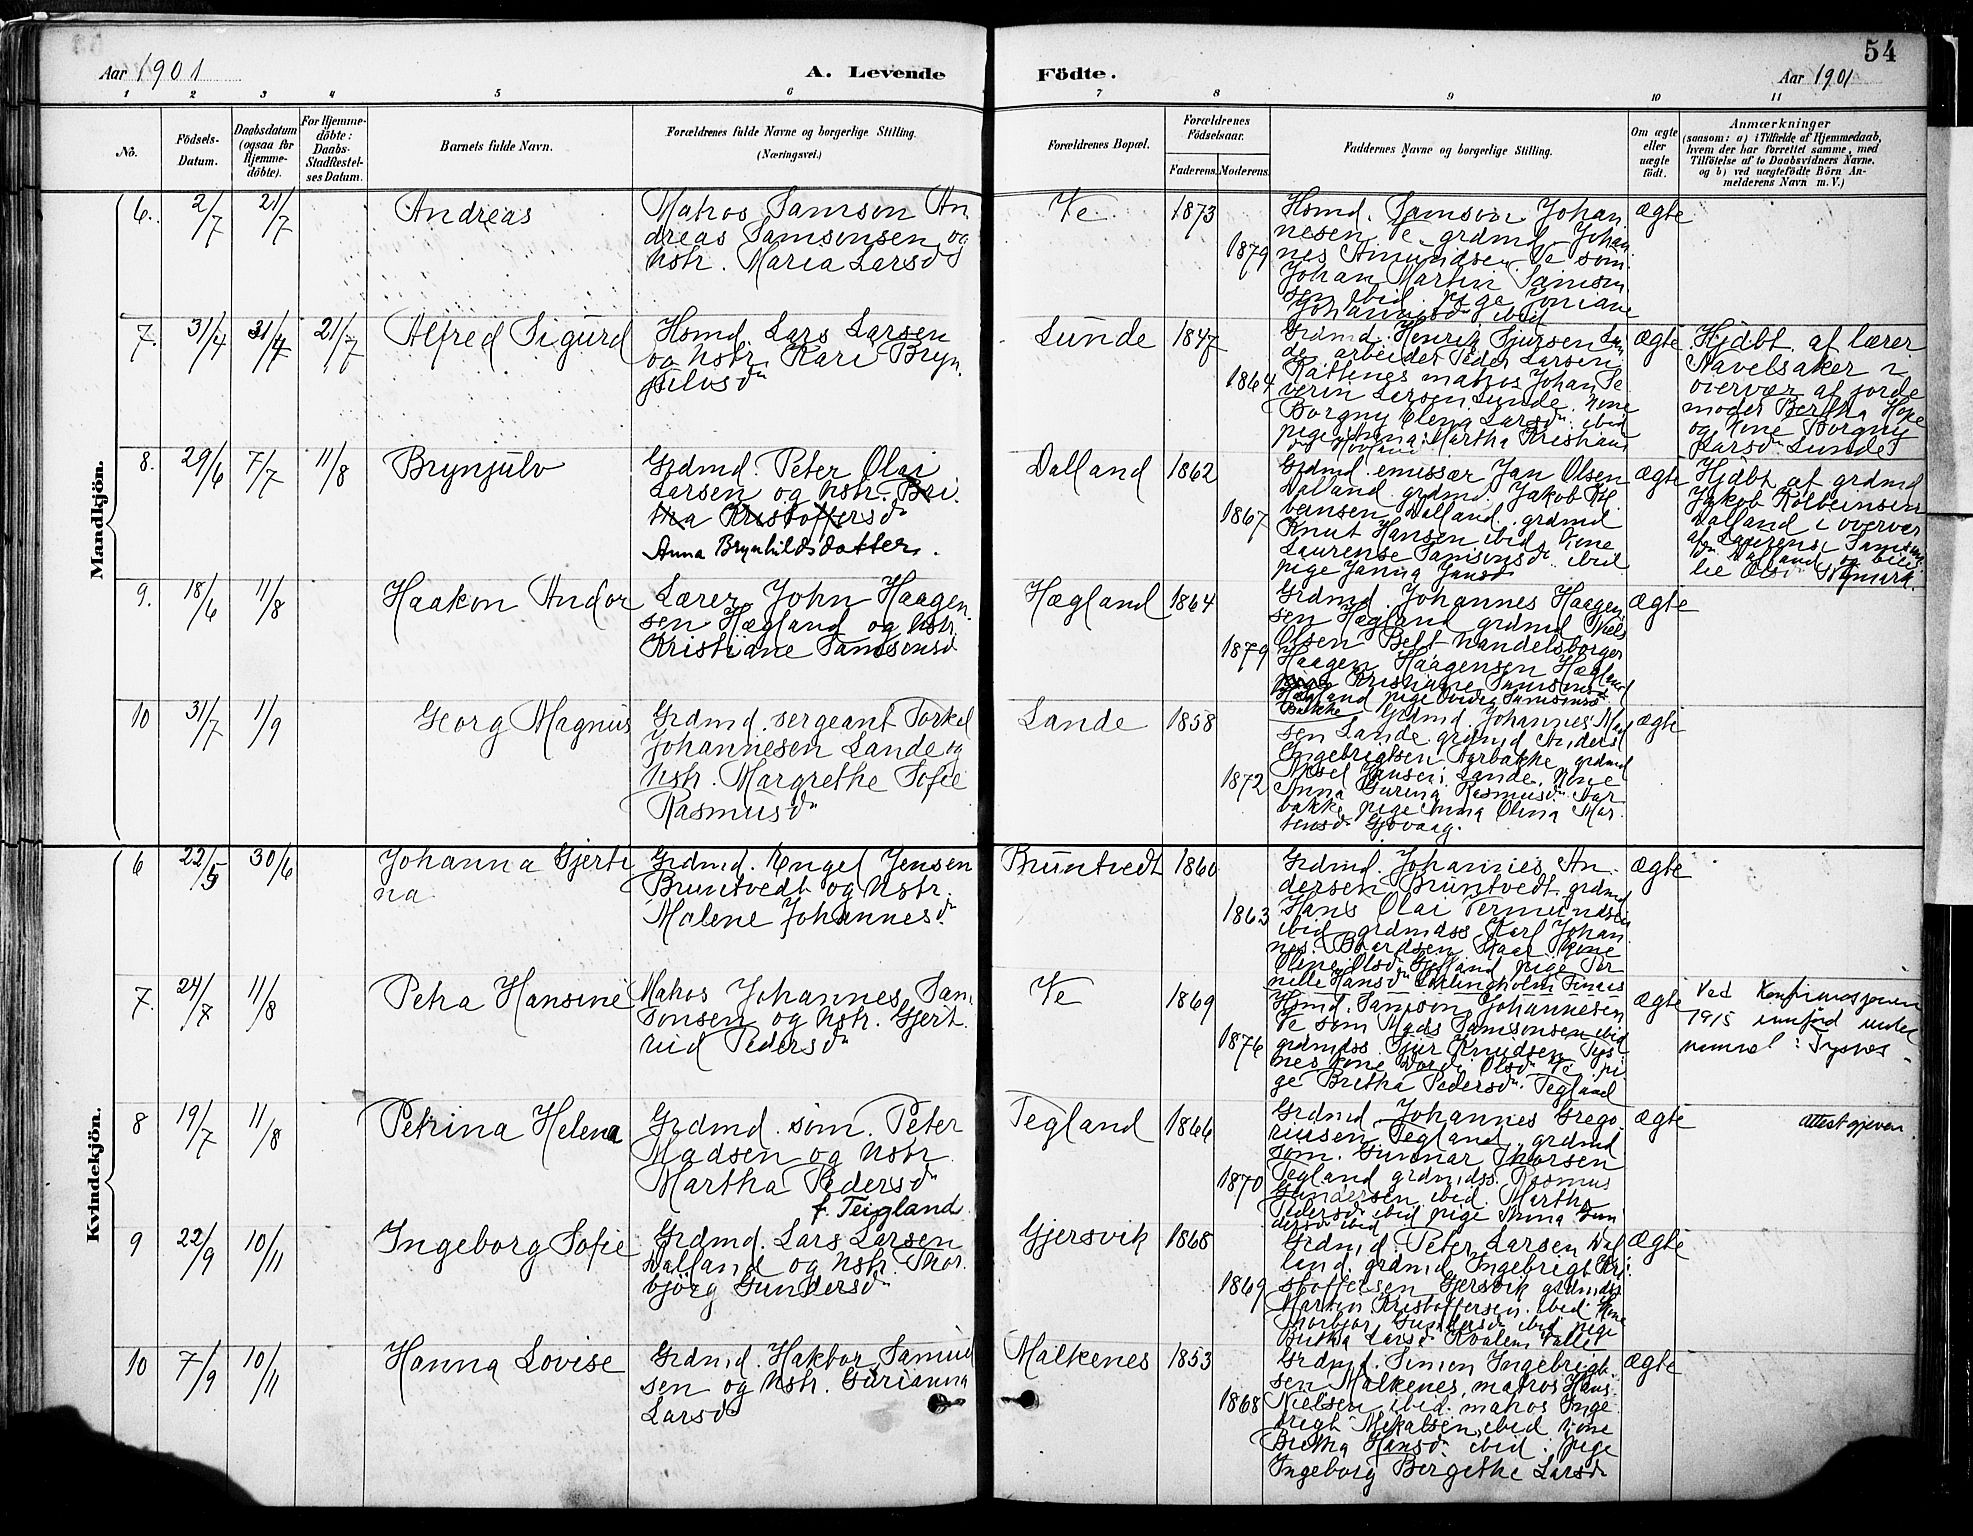 54
Aar 1901
A. Levende
Födte.
Aar 1901
1 2 3 4 5 6 7 8 9 10 11
No.
Födsels-
Datum.
Daabsdatum
(ogsaa for
Hjemme-
döbte).
For Hjemme-
döbte:
Daabs-
Stadfæstel-
ses Datum.
Barnets fulde Navn.
Forældrenes fulde Navne og borgerlige Stilling.
(Næringsvei.)
Forældrenes Bopæl.
Forældrenes
Födselsaar.
Faderens. Moderens.
Faddernes Navne og borgerlige Stilling.
Om ægte
eller
uægte
födt.
Anmærkninger
(saasom: a) i Tilfælde af Hjemmedaab,
hvem der har forrettet samme, med
Tilföielse af to Daabsvidners Navne,
og b) ved uægtefödte Börn An-
melderens Navn m. V.)
Mandkjön.
6. 2/7 21/7
Andreas
Matros Samson An
dreas Samsonsen og
hstr. Maria Larsd
Ve
1873
1879
Hsmd. Samson Johan
nesen Ve grdmd Johan
nes Amundsen Ve som.
Johan Martin Samson
sen ibid. pige Joniane
Johannesd ibid
ægte
7. 31/4 31/4 21/7
Alfred Sigurd
Hsmd. Lars Larsen
og hstr. Kari Bryn
julvsdn
Lunde
1847
1864
Grdmd. Henrik Sjursen Lun
de arbeider Peder Larsen
Rattenes matros Johan Se
verin Larsen Lunde. kone
Borgny Elena Larsdn ibid
pige Anna Martha Kristians
dn Hovland
ægte
Hjdbt. af lærer
Navelsaker i
overvær af jorde
moder Bertha Hope
og kone Borgny
Larsdn Lunde
8. 29/6 7/7 11/8
Brynjulv
Grdmd. Peter Olai
Larsen og hstr. Bri
tha Kristoffersdn
Anna Brynhildsdotter.
Dalland
1862
1867
Grdmd. emissær Jan Olsen
Dalland grdmd. Jakob Kol
beinsen Dalland. grdmd
Knut Hansen ibid, kone
Laurense Samsonsdn ibid
pige Janna Jansd
ægte
Hjdbt. af grdmd
Jakob Kolbeinsen
Dalland i overvær
af Laurense Samsons
dn Dalland og
Olsdn Nymark.
9. 18/6 11/8
Haakon Andor
Lærer John Haagen
sen Hægland og hstr.
Kristiane Samsonsd
Hægland
1864
1879
Grdmd. Johannes Haagen
sen Hægland grdmd Niels
Olsen Belt handelsborger
Haagen Haagensen Hægland
Kristiane Samsonsd
Hægland pige Ovidia Samsonsd
Bakke
ægte
10 31/7 1/9
Georg Magnus
Grdmd. sergeant Torkel
Johannesen Lande og
hstr. Margrethe Sofie
Rasmusdn
Lande
1858
1872
Grdmd. Johannes
sen Lande grdmd Anders
Ingebrigtsen Aarbakke grdmd
Aksel Jansen Lande. kone
Anna Gurina Rasmusdn Aar
bakke pige Anna Olina Mor
tensdn Gjøvaag.
ægte
Kvindekjön.
6 22/5 30/6
Johanna Gjerti
na
Grdmd. Engel Jensen
Bruntvedt og hstr.
Malene Johannesdn
Bruntvedt
1860
1863
Grdmd. Johannes An
dersen Bruntvedt grdmd
Hans Olai Vermundsen
ibid grdmdss Karl Johan
nes Baardsen kone
Olina Olsdn pige Per
nille Hansdn Erlingholm Finnes
ægte
7. 24/7 11/8
Petra Hansine
Matros Johannes Sam
sonsen og hstr. Gjert
rud Pedersdn
Ve
1869
1876
Hsmd. Samson Johannesen
Ve som Mads Samsonsen ibid
grdmdss. Sjur Knudsen Tys
nes kone Dordi Olsdn Ve pi
ge Britha Pedersdn Tegland
ægte
Ved Konfirmasjonen
1915 innförd under
: Tysnes
8 19/7 11/8
Petrina Helena
Grdmd. söm. Peter
Madsen og hstr.
Martha Pedersdn
f. Teigland
Tegland
1866
1870
Grdmd Johannes Grego
riussen Tegland grdmd
söm. Gunnar Thorsen
Tegland grdmdss. Rasmus
Gundersen ibid. Martha
Pedersdn ibid pige Anna Gun
dersd ibid
ægte
attest gjeven
9 22/9 10/11
Ingeborg Sofie
Grdmd. Lars Larsen
Dalland og hstr. Thor
björg Gundersdn
Gjersvik
1868
1869
Grdmd. Peter Larsen Dal
land. grdmd Ingebrigt Kri
stoffersen Gjersvik grdmdss
Martin Kristoffersen ibid kone
Thorbjör Gundersd ibid pige
Britha Larsd
ægte
10 7/9 10/11
Hanna Lovise
Grdmd. Hakbor Samuel
sen og hstr. Gurianna
Larsdn
Malkenes
1853
1868
Grdmd. Simon Ingebrigt
sen Malkenes, matros Hans
Nielsen ibid. matros Inge
brigt Mikalsen ibid kone
Britha Hansdn ibid. pige
Ingeborg Bergithe Larsdn
ægte